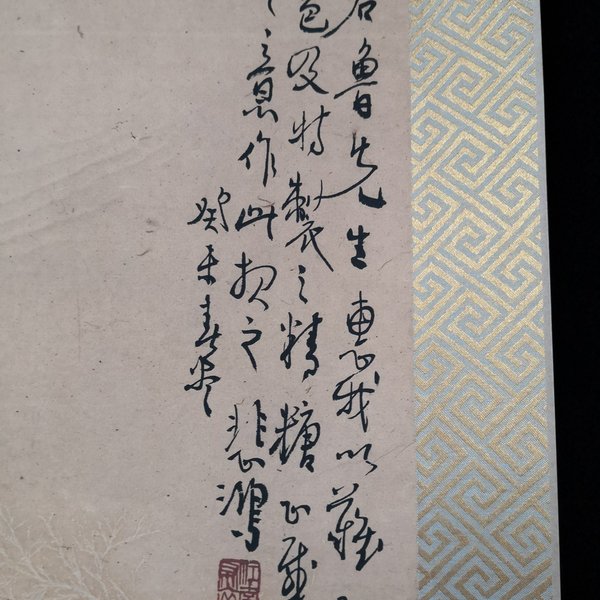 魯先生惠我以藕
及特製之精糖
之意作此报之 悲鴻
癸未春尽